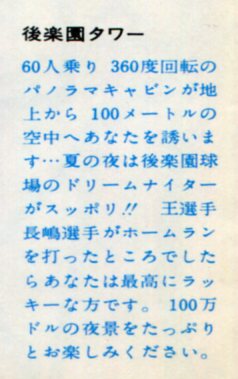 後楽園タワー
60人乗り 360度回転の
パノラマキャビンが地
上から 100メートルの
空中へあなたを誘いま
す…夏の夜は後楽園球
場のドリームナイター
がスッポリ!! 王選手
長嶋選手がホームラン
を打ったところでした
らあなたは最高にラッ
キーな方です。 100万
ドルの夜景をたっぷり
とお楽しみください。